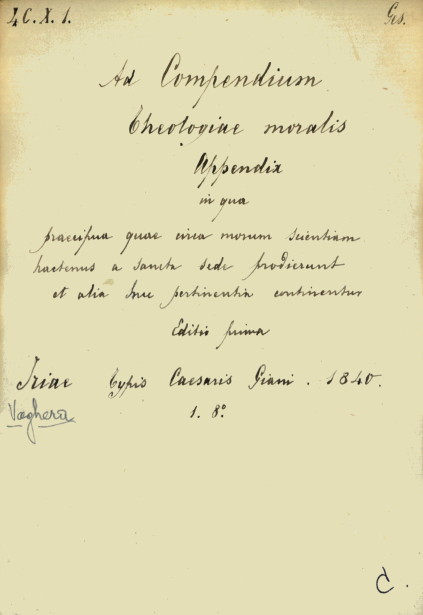 4 C. X. 1. Ges.
Ad Compendium
Theologiae moralis
Appendix
in qua
praecipua quae circa morum scientiam
hactenus a sancta sede prodierunt
et alia huc pertinentia continentur
Editio prima
Iriae Typis Caesaris Giani . 1840.
Voghera
1. 8°
C .